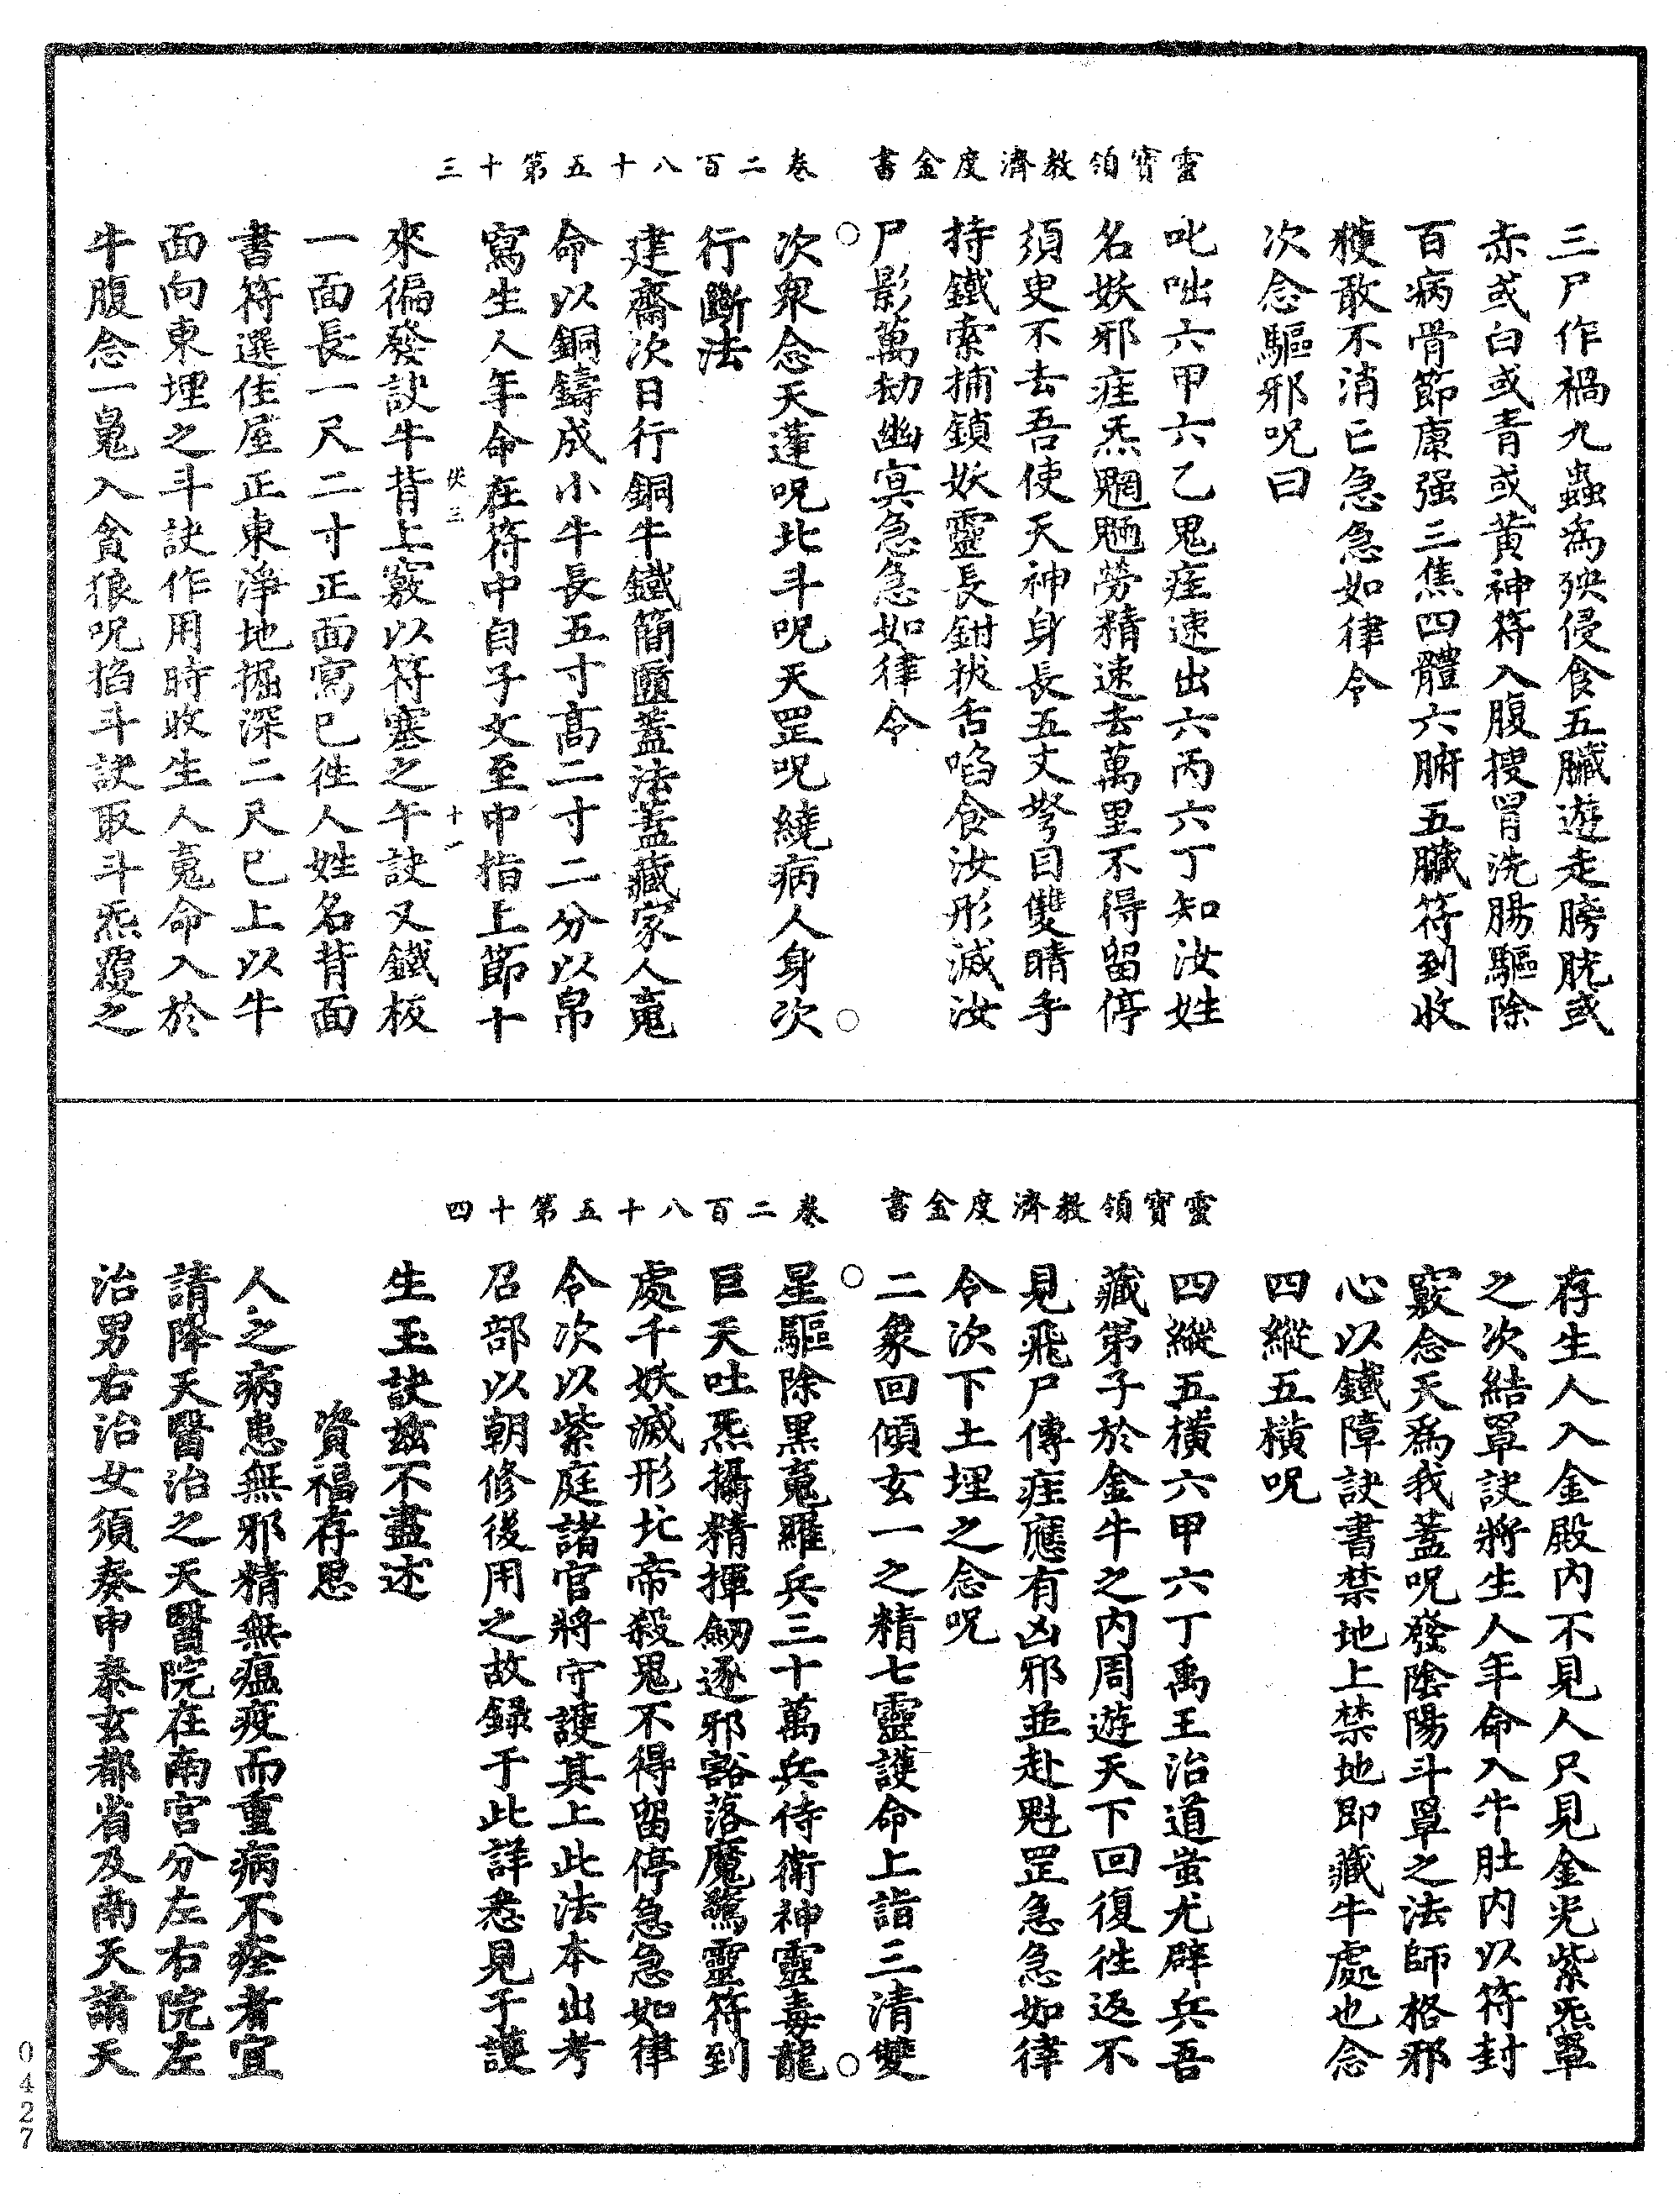 靈寶領教濟度金書　卷二百八十五第十三
三尸作禍九蟲為殃侵食五臟遊走膀胱或
赤或白或青或黃神符入腹搜胃洗腸驅除
百病骨節康强三焦四體六腑五臟符到收
穫敢不消亡急急如律令
次念驅邪呪曰
叱咄六甲六乙鬼疰速出六丙六丁知汝姓
名妖邪疰炁魍魎勞精速去萬里不得留停
須臾不去吾使天神身長五丈努目雙睛手
持鐵索捕鎖妖靈長鉗拔舌啗食汝形滅汝
尸影萬劫幽冥急急如律令
○次衆念天蓬呪北斗呪天罡呪繞病人身次○
行斷法
建齋次日行銅牛鐵簡匱蓋法蓋藏家人䰟
命以銅鑄成小牛長五寸高二寸二分以帛
寫生人年命在符中自子文至中指上節十
伏三　十一
來徧發訣牛背上竅以符塞之午訣又鐵板
一面長一尺二寸正面寫已徃人姓名背面
書符選住屋正東淨地掘深二尺已上以牛
面向東埋之斗訣作用時收生人䰟命入於
牛腹念一䰟入貪狼呪掐斗訣取斗炁覆之
靈寶領教濟度金書　卷二百八十五第十四
存生人入金殿內不見人只見金光紫炁罩
之次結罩訣將生人年命入牛肚內以符封
竅念天為我蓋呪發陰陽斗罩之法師格邪
心以鐵障訣書禁地上禁地即藏牛處也念
四縱五橫呪
四縱五橫六甲六丁禹王治道蚩尤辟兵吾
藏第子於金牛之內周遊天下回復徃返不
見飛尸傳疰應有凶邪並赴魁罡急急如律
令次下土埋之念呪
二象回傾玄一之精七靈護命上詣三清雙
○星驅除黑䰟羅兵三十萬兵侍衛神靈毒龍○
巨天吐炁攝精揮劒逐邪豁落魔驚靈符到
處千妖滅形北帝殺鬼不得留停急急如律
令次以紫庭諸官將守護其上此法本出考
召部以朝修後用之故録于此詳悉見于護
生玉訣兹不盡述
資福存思
人之病患無邪精無瘟疫而重病不痊者宜
請降天醫治之天醫院在南宮分左右院左
治男右治女須奏申泰玄都省及南天請天
0427